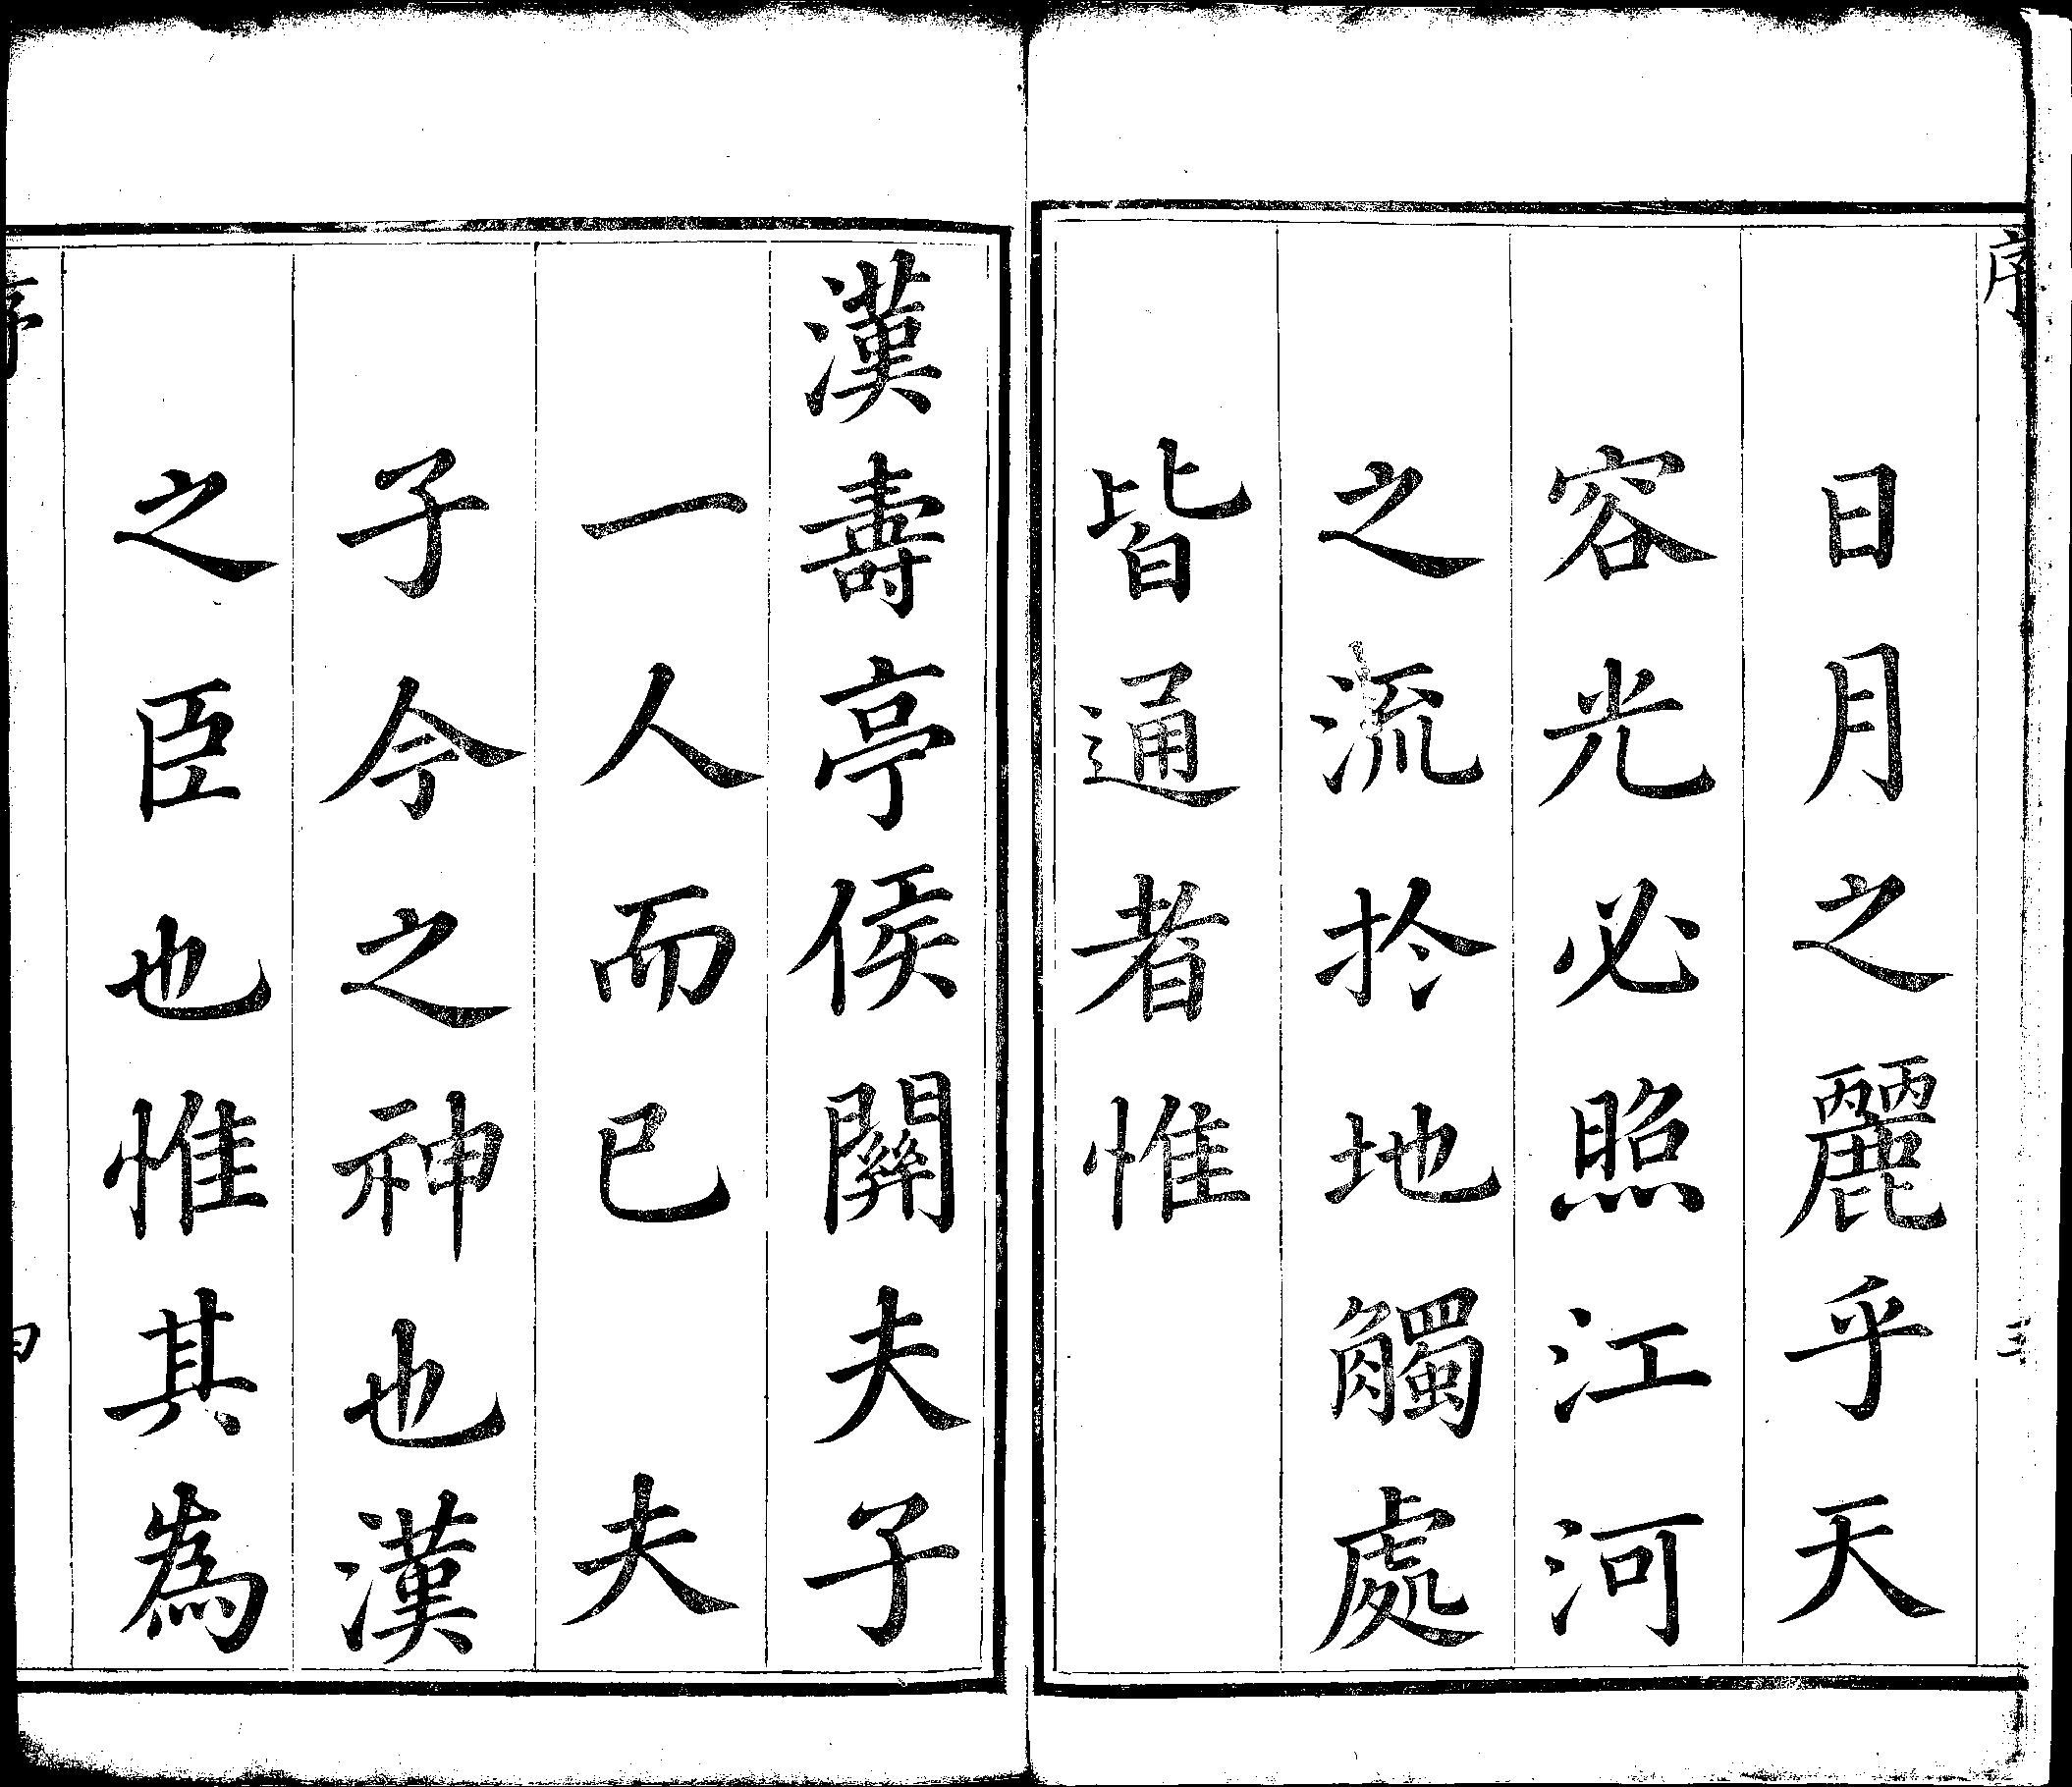 序
三
日月之麗乎天
容光必照江河
之流於地觸處
皆通者惟
漢壽亭侯關夫子
一人而已 夫
子今之神也漢
之臣也惟其為
序